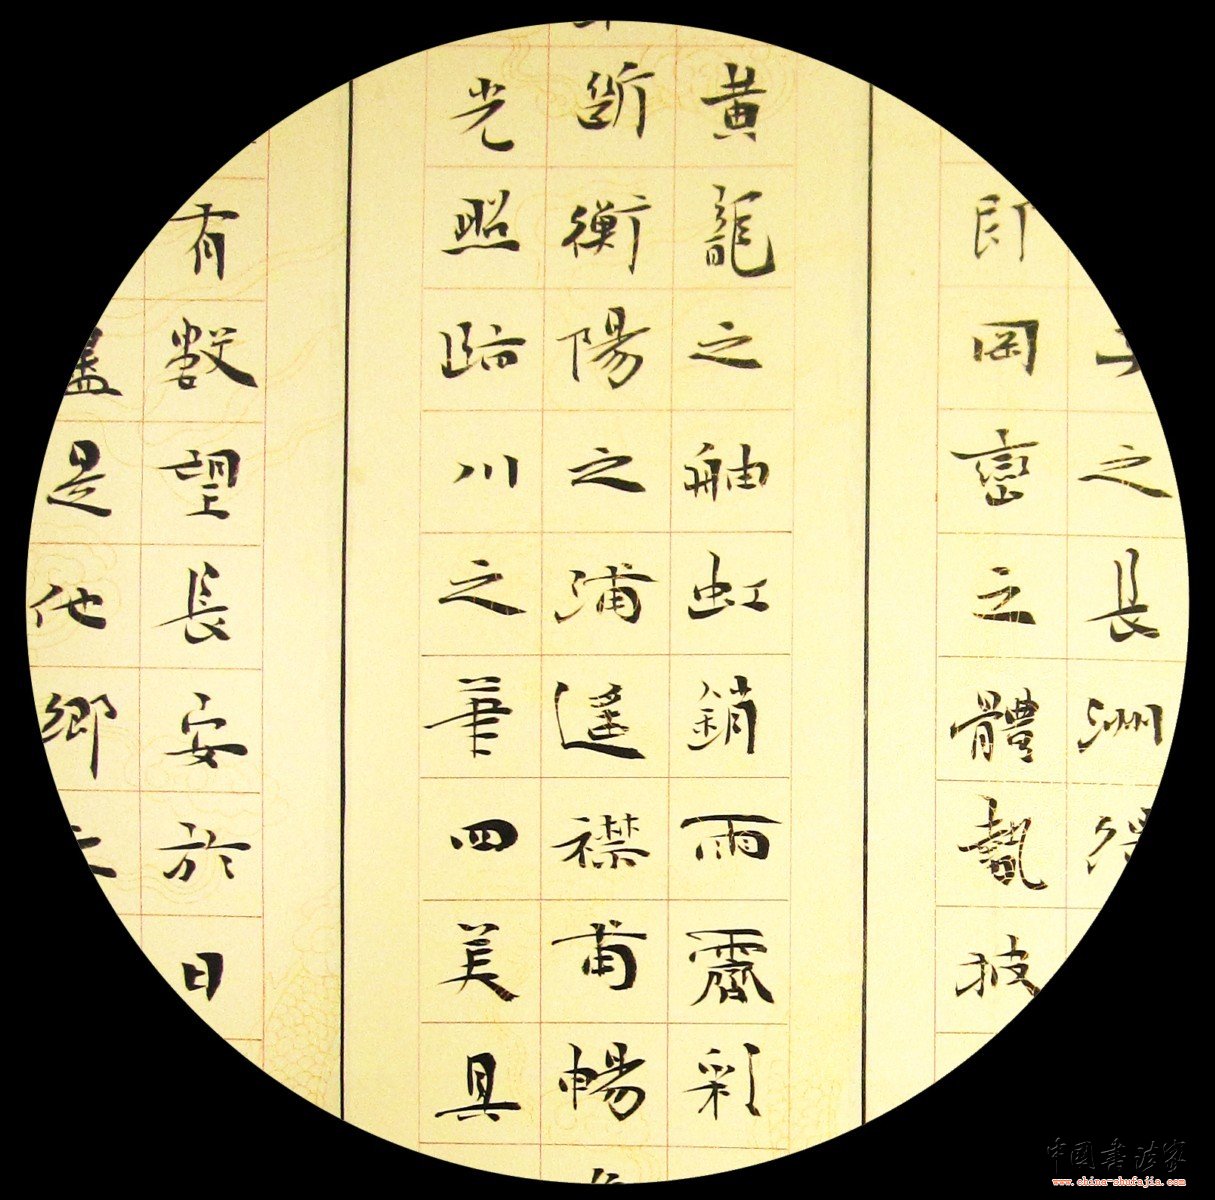 之長洲
即岡巒之體勢披
黄龍之舳虹銷雨霽彩
斷衡陽之浦遙襟甫暢
光照臨川之筆四美具
有數望長安於日
盡是他鄉
中国书法家
www.china-shufajia.com